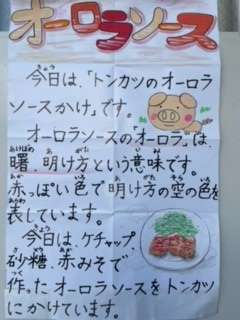 オーロラソース
今日は、「トンカツのオーロラ
ソースかけ」です。
オーロラソースの「オーロラ」は、
曙、明け方という意味です。
赤っぽい色で明け方の空の色を
表しています。
今日は、ケチャップ、
砂糖、赤みそで
作ったオーロラソースをトンカツ
にかけています。